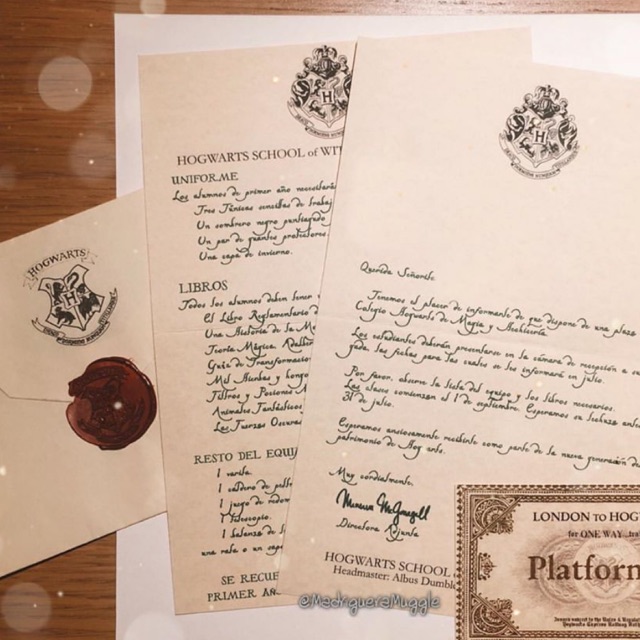 HOGWARTS
HOGWARTS SCHOOL of
UNIFORME
Los alumnos de primer año necesitarán
Tres Túnicas sencillas de trabaj
Un sombrero negro puntiagudo
Un par de guantes protectores
Una capa de invierno.
LIBROS
Todos los alumnos deben tener
El Libro Reglamentario
Una Historia de la
Teoría Mágica,
Guía de Transformación
Mil Hierbas y Hongo
Filtros y Pociones
Animales Fantásticos
Las Fuerzas Oscuras
RESTO DEL EQUI
1 varita.
1 caldero de
1 juego de
1 telescopio.
1 balanza de
una rata o un
SE RECUE
PRIMER AÑ
Querida Señorita:
Tenemos el placer de informarle de que dispone de una plaza
Colegio Hogwarts de Magia y Hechicería.
Los estudiantes deberán presentarse en la cámara de recepción a su
gada, las fechas para las cuales se les informará en julio.
Por favor, observe la lista del equipo y los libros necesarios.
Las clases comienzan el 1 de septiembre. Esperamos su lechuza antes
31 de julio.
Esperamos ansiosamente recibirle como parte de la nueva generación
patrimonio de Hogwarts.
Muy cordialmente,
Minerva McGonagall
Directora Adjunta
HOGWARTS SCHOOL
Headmaster: Albus Dumble
LONDON TO HOG
for ONE WAY
Platform
@MadrigueraMuggle